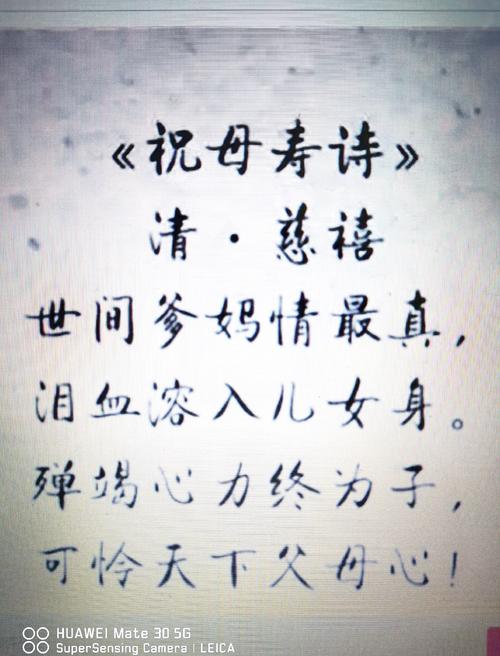 《祝母寿诗》
清·慈禧
世间爹妈情最真，
泪血溶入儿女身。
殚竭心力终为子，
可怜天下父母心！
HUAWEI Mate 30 5G
SuperSensing Camera | LEICA